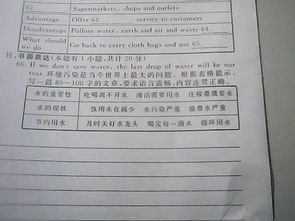 62. Supermarkets, shops and outlets
Advantage Offer 63. service to customers
Disadvantage Pollute water, earth and air and waste 64.
What should we do? Go back to carry cloth bags and use 65.
书面表达(本题有1小题,共计20分)
66. If we don't save water, the last drop of water will be our
tear. 环境污染是当今世界上最大的问题。根据表格提示,
写一篇80—100字的文章,要求语言流畅,内容连贯正确。
水的重要性 吃喝离不开水 清洁需要用水 庄稼灌溉要水
水的现状 饮用水在减少 水污染严重 浪费水严重
节约用水 及时关好水龙头 喝完每一滴水 循环用水